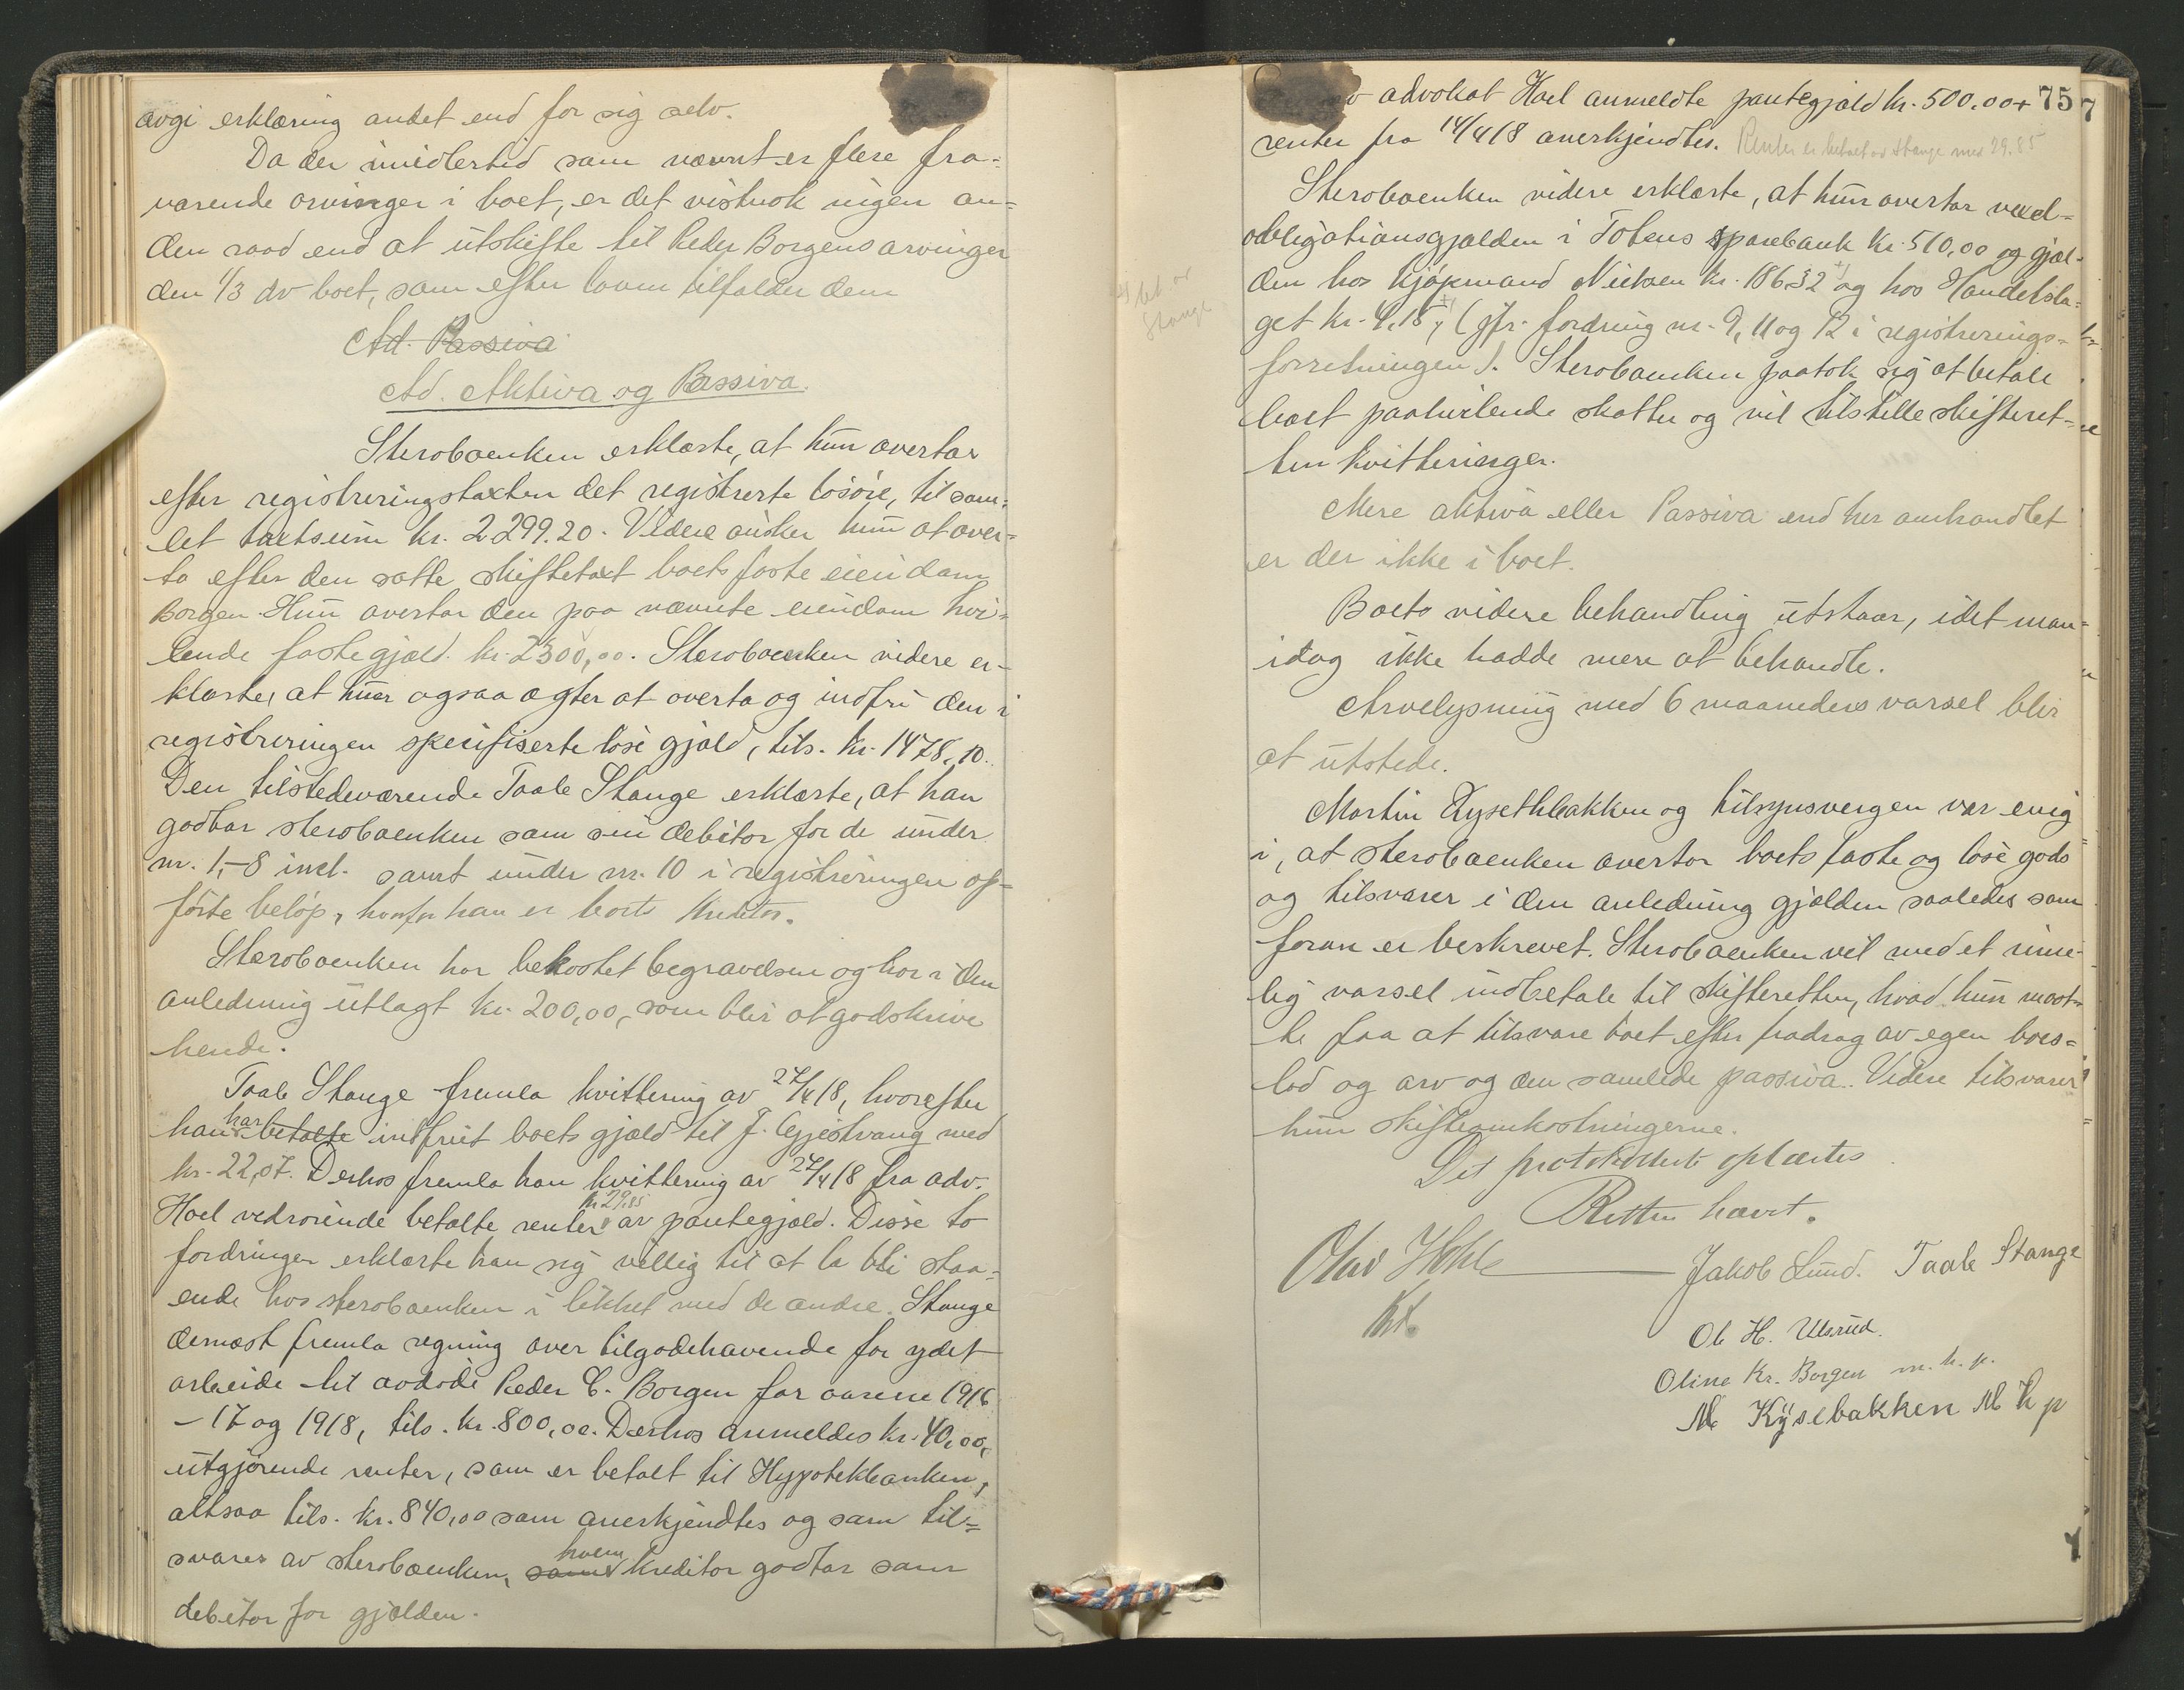 avgi erklæring andet end for sig selv.
Da der imidlertid som nævnt er flere fra-
værende arvinger i boet, er det vistnok ingen an-
den raad end at utskifte til Peder Borgens arvinger
den 1/3 av boet, som efter loven tilfalder dem
Ad. Passiva
Ad. Aktiva og Passiva.
Sterboenken erklærte, at hun overtar
efter registreringstaxten det registrerte løsøre, til sam-
let taxtsum kr. 2299.20. Videre ønsker hun at over-
ta efter den satte skiftetaxt boets faste eiendom
Borgen. Hun overtar den paa nævnte eiendom hvi-
lende fastegjæld kr. 2300,00. Sterboenken videre er-
klærte, at hun ogsaa agter at overta og indfri den i
registreringen spesifiserte løse gjæld, tils. kr. 1478,10.
Den tilstedeværende Taale Stange erklærte, at han
godtar sterboenken som sin debitor for de under
nr. 1-8 incl. samt under nr. 10 i registreringen op-
førte beløp, hvorfor han er boets kreditor.
Sterboenken har bekostet begravelsen og har i den
anledning utlagt kr. 200,00, som blir at godskrive
hende.
Taale Stange fremla kvittering av 27/4 18, hvorefter
han har betalte indfriet boets gjæld til F. Gjestvang med
kr. 22,07. Derhos fremla han kvittering av 27/4 18 fra adv.
Hoel vedrørende betalte renter kr. 29,85 av pantegjæld. Disse to
fordringer erklærte han sig villig til at la bli staa-
ende hos sterboenken i likhet med de andre. Stange
dernæst fremla regning over tilgodehavende for ydet
arbeide til avdøde Peder C. Borgen for aarene 1916
-17 og 1918, tils. kr. 800,00. Derhos anmeldes kr. 40,00,
utgjørende renter, som er betalt til Hypotekbanken,
altsaa tils. kr. 840,00 som anerkjendtes og som til-
svares av sterboenken, som hvem kreditor godtar som
debitor for gjælden.
av advokat Hoel anmeldte pantegjæld kr. 500,00 + 75
renter fra 14/4 18 anerkjendtes. Renter er betalt av Stange med 29.85
Sterboenken videre erklærte, at hun overtar vexel-
obligationsgjælden i Totens sparebank kr. 510,00 og gjæl-
den hos kjøpmand Nielsen kr. 186,32 +) og hos Handelsla-
get kr. 4,15 +), (jfr. fordring nr. 9, 11 og 12 i registrerings-
forretningen). Sterboenken paatok sig at betale
boet paahvilende skatter og vil tilstille skifteret-
ten kvitteringer.
Mere aktiva eller Passiva end her omhandlet
er der ikke i boet.
Boets videre behandling utstaar, idet man
idag ikke hadde mere at behandle.
Arvelysning med 6 maaneders varsel blir
at utstede.
Martin Kysethbakken og tilsynsvergen var enig
i, at sterboenken overtar boets faste og løse gods
og tilsvarer i den anledning gjælden saaledes som
foran er beskrevet. Sterboenken vil med et rime-
lig varsel indbetale til skifteretten, hvad hun maat-
te faa at tilsvare boet efter fradrag av egen boes-
lod og arv og den samlede passiva. Videre tilsvarer
hun skifteomkostningerne.
Det protokollerte oplæstes
Retten hævet.
Jakob Lund. Taale Stange
Ole H. Ulsrud.
Oline Kr. Borgen m. h. p.
M Kÿsebakken M h p